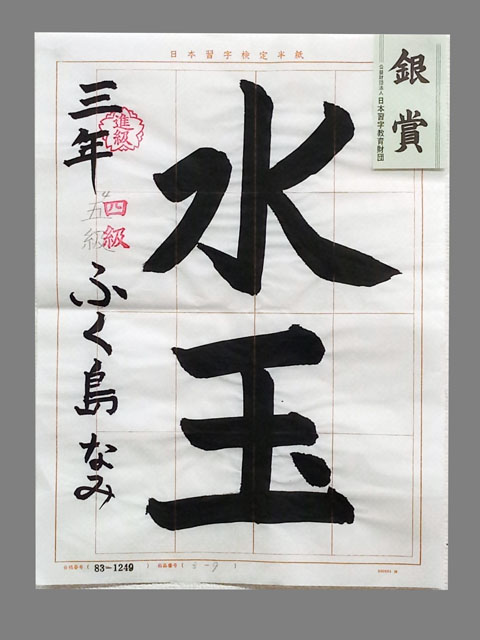 日本習字検定半紙
銀賞
公益財団法人 日本習字教育財団
水玉
三年
進級
四級
五級
ふく島なみ
83-1249